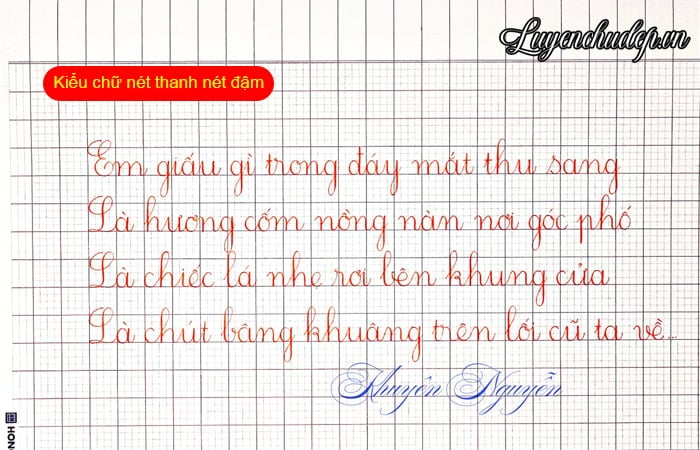 Luyenchudep.vn
Kiểu chữ nét thanh nét đậm
Em giấu gì trong đáy mắt thu sang
Là hương cốm nồng nàn nơi góc phố
Là chiếc lá nhẹ rơi bên khung cửa
Là chút bâng khuâng trên lối cũ ta về...
Khuyên Nguyễn
HON